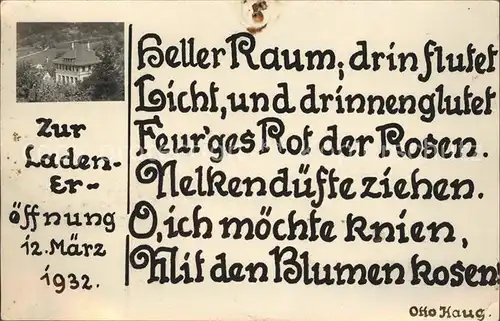 Zur
Laden-
Er-
öffnung
12. März
1932.
Heller Raum; drin flutet
Licht, und drinnen glutet
Feur'ges Rot der Rosen.
Nelkendüfte ziehen.
O, ich möchte knien,
Mit den Blumen kosen.
Otto Haug.